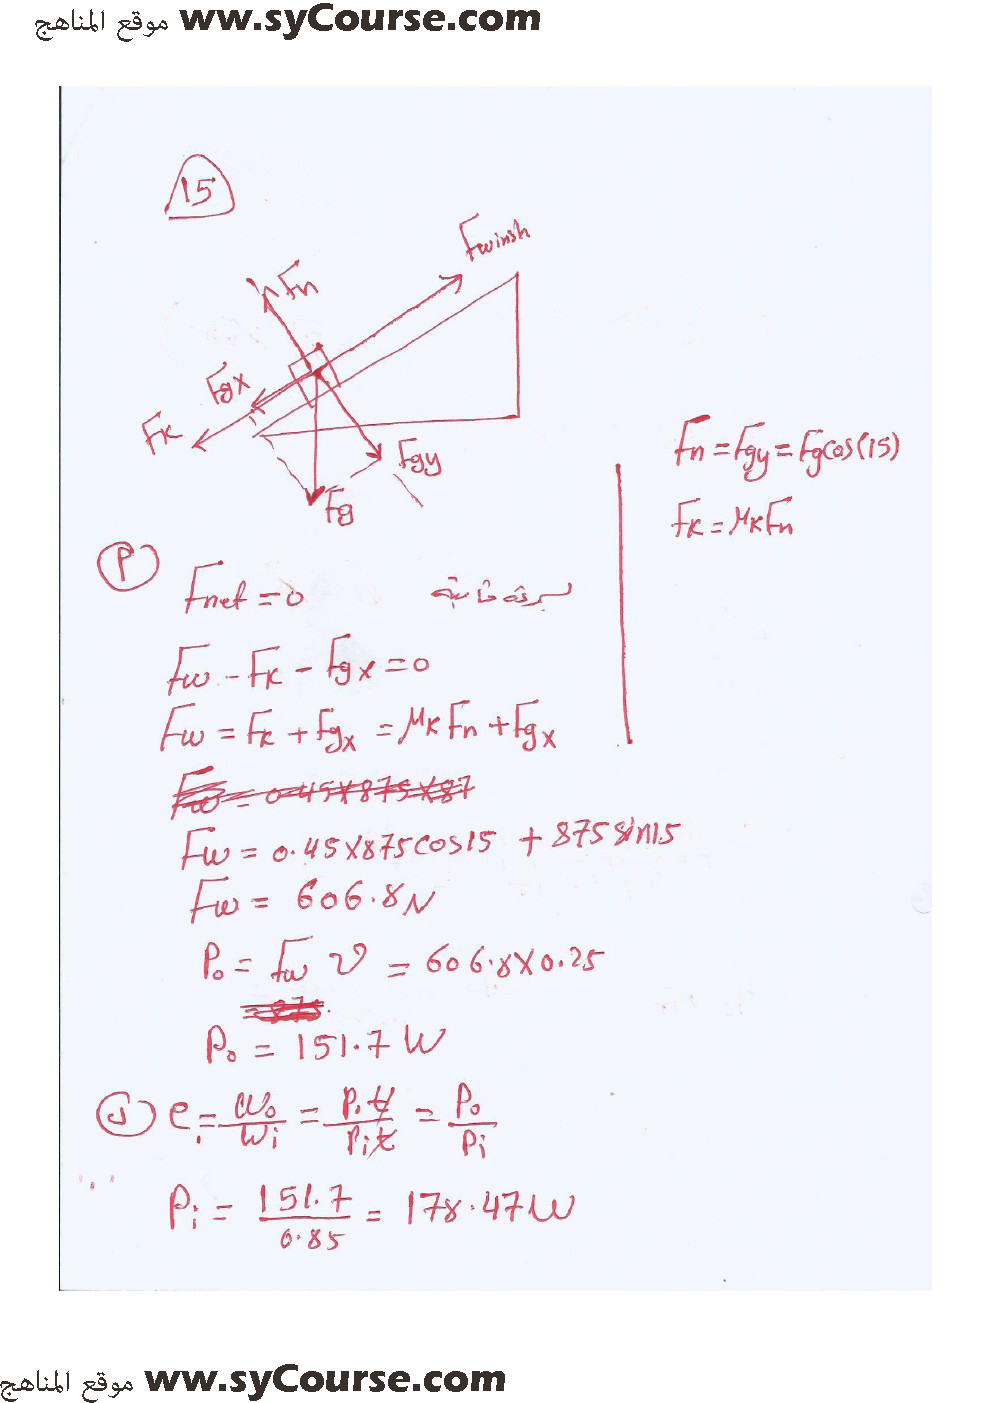 موقع المناهج www.syCourse.com
15
Fwinsh
Fn
Fgx
Fk
Fgy
Fg
Fn = Fgy = Fgcos(15)
Fk = μkFn
P
Fnet = 0 سرعة ثابتة
Fw - Fk - Fgx = 0
Fw = Fk + Fgx = μkFn + Fgx
Fw = 0.45×875×87
Fw = 0.45×875cos15 + 875sin15
Fw = 606.8N
Po = Fw v = 606.8×0.25
Po = 151.7 W
ب e = Wo/Wi = Po t/Pi t = Po/Pi
Pi = 151.7/0.85 = 178.47W
موقع المناهج www.syCourse.com